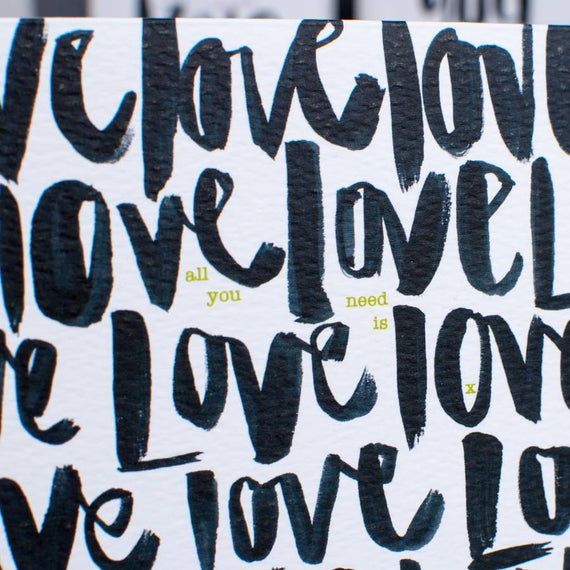 ve love lov
love love L
all
you
need
is
e Love lov
x
ve love Lo